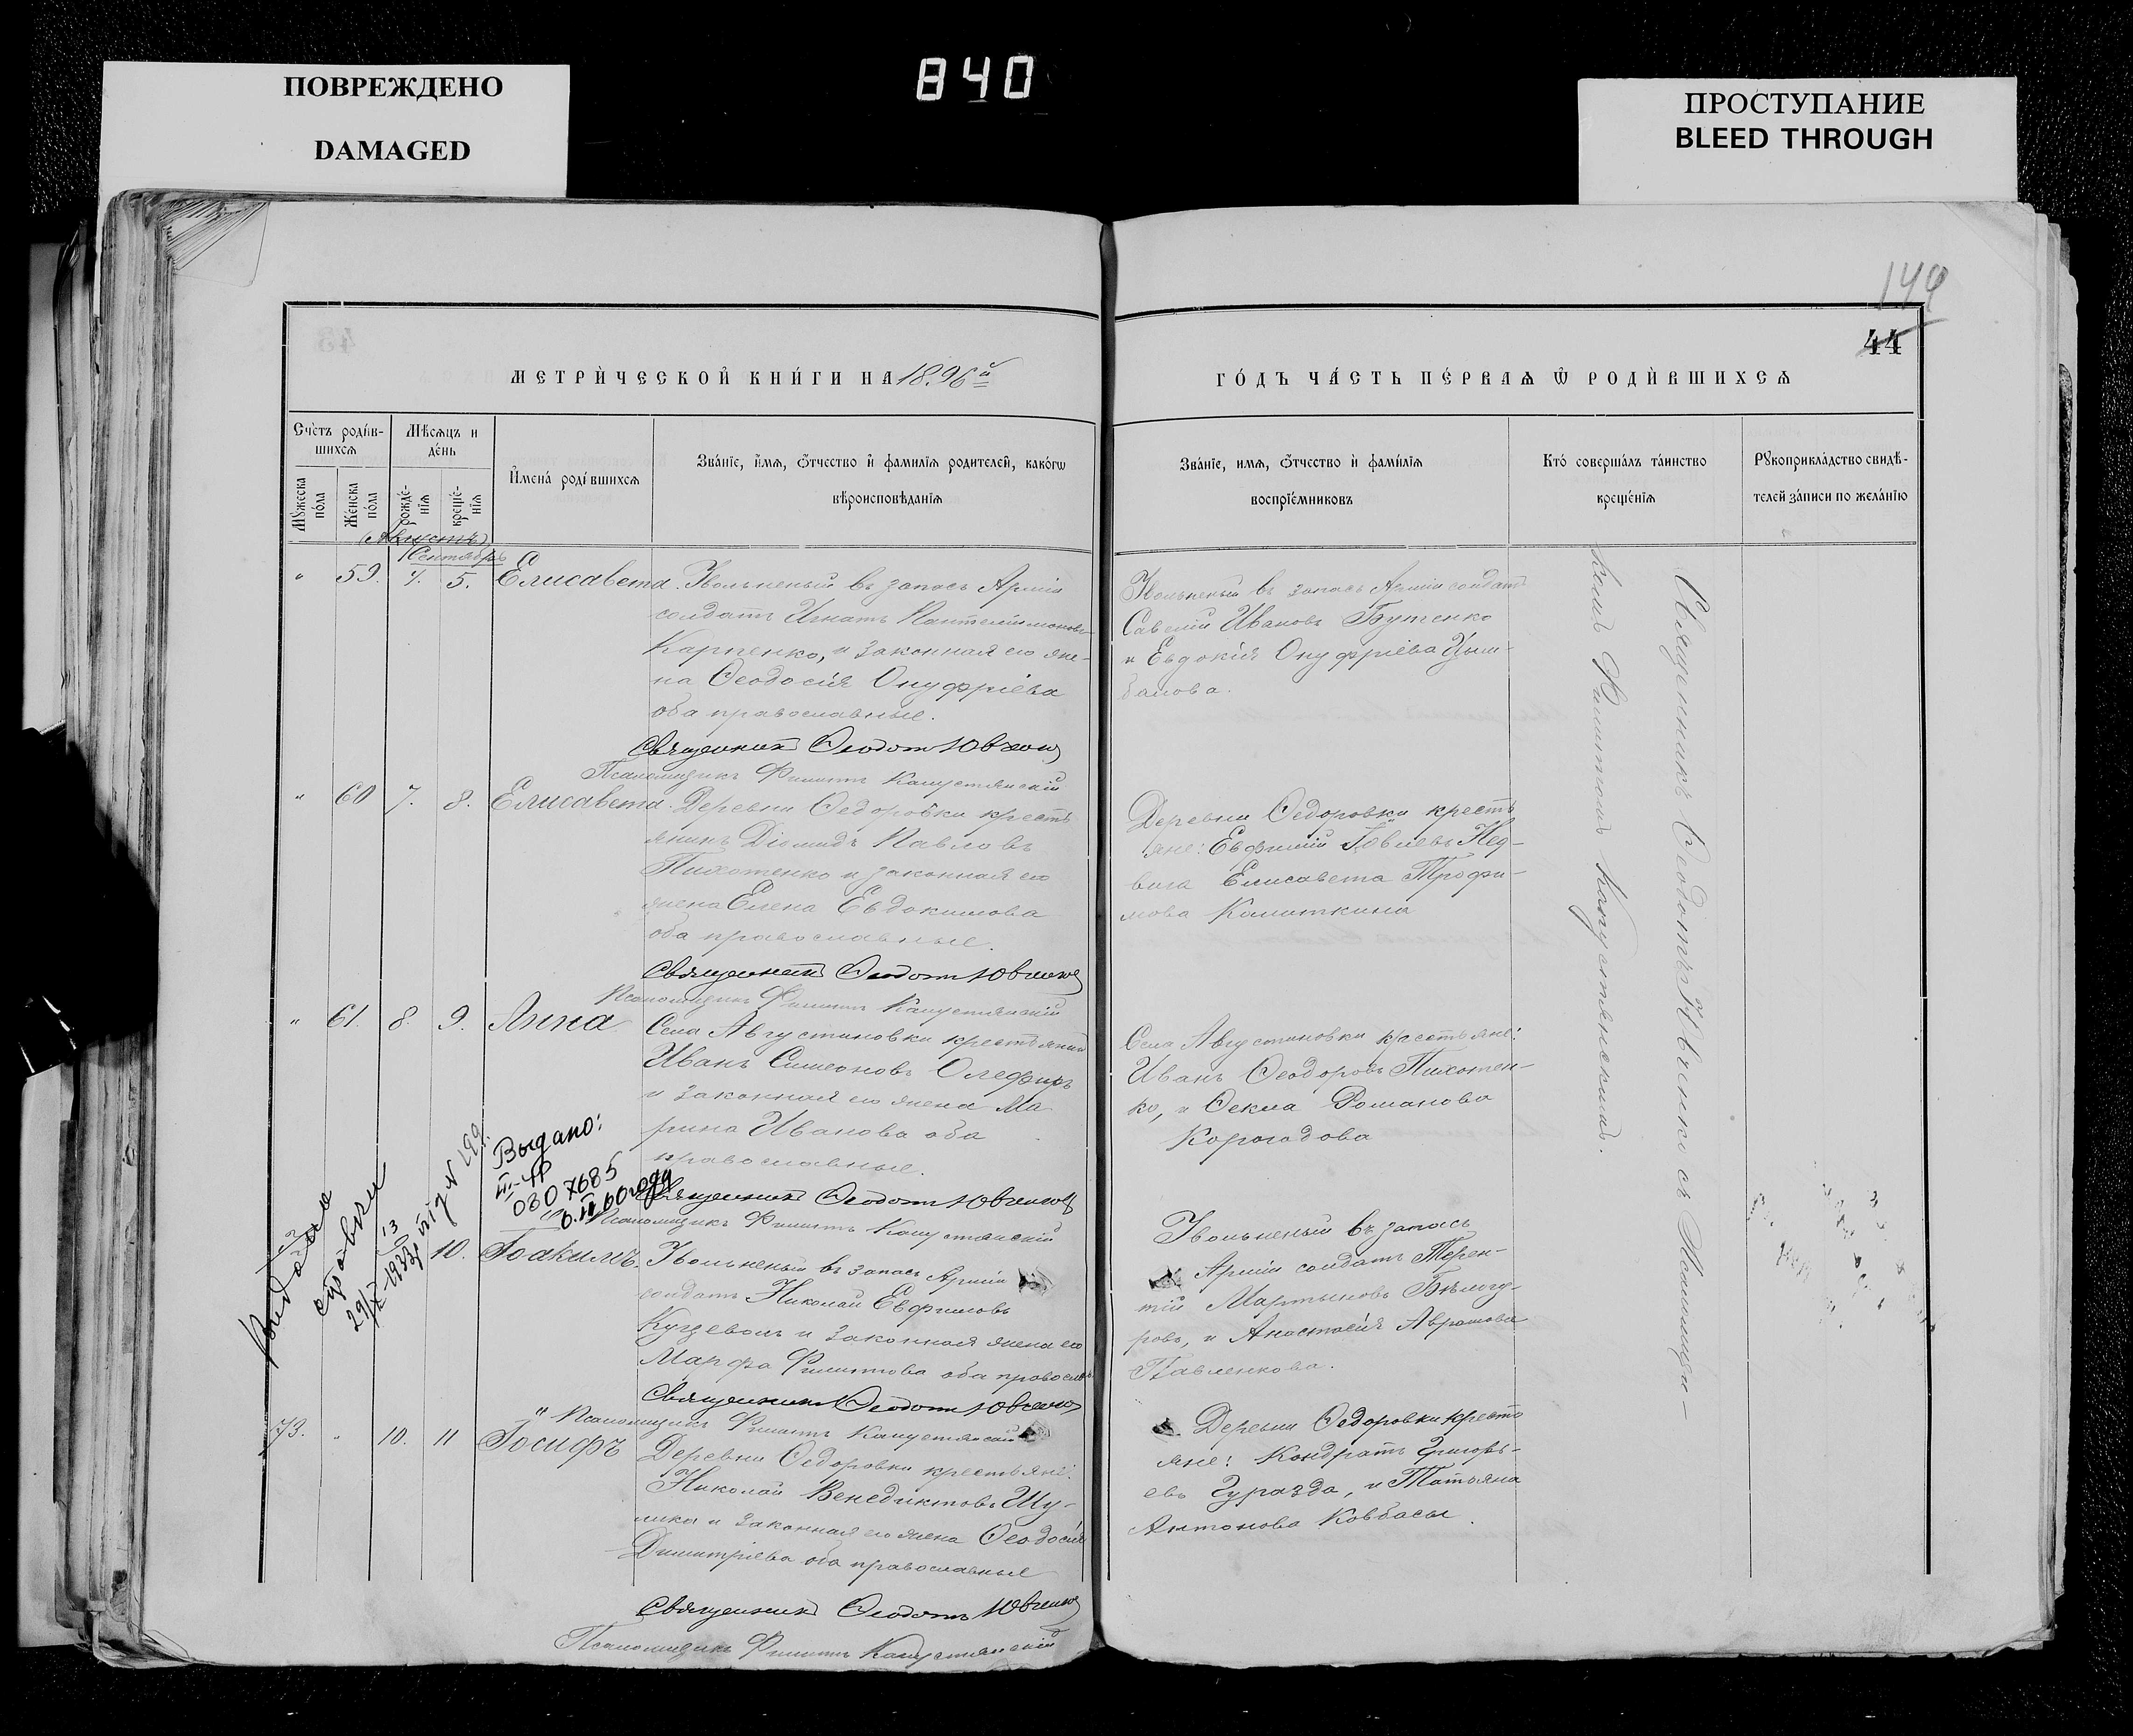 840
ПОВРЕЖДЕНО
DAMAGED
ПРОСТУПАНИЕ
BLEED THROUGH
144
44
МЕТРИ́ЧЕСКОЙ КНИ́ГИ НА 1896й
ГО́ДЪ ЧА́СТЬ ПЕ́РВАѦ Ѡ҆ РОДИ́ВШИХСѦ
Сче́тъ роди́в-
шихсѧ
Мѣсѧцъ и
де́нь
Мꙋжеска по́ла
Же́нска по́ла
рожде́-
нїѧ
креще́-
нїѧ
И҆мена́ роди́вшихсѧ
Зва́нїе, и҆́мѧ, ѻ҆́тчество и҆ фами́лїѧ родителей, како́гѡ
вѣроисповѣ́данїѧ
Зва́нїе, имѧ, ѻ҆́тчество и҆ фами́лїѧ
воспрїе́мниковъ
Кто́ соверша́лъ та́инство
креще́нїѧ
Рꙋкоприкла́дство свидѣ́-
телей за́писи по жела́нїю
(Августъ)
Сентябрь
" 59. 4. 5. Елисавета. Увольненый въ запасъ Арміи
солдатъ Игнатъ Пантелиимоновъ
Карпенко, и законная его же-
на Ѳеодосія Онуфріева
оба православные.
Священникъ Ѳеодотъ Ювченко
Псаломщикъ Филиппъ Капустянскій
Увольненый въ запасъ Арміи солдатъ
Савелій Ивановъ Бутенко
и Евдокія Онуфріева Цым-
балова.
" 60 7. 8. Елисавета. Деревни Ѳедоровки кресть
янинъ Діомидъ Павловъ
Пихотенко и законная его
жена Елена Евдокимова
оба православные.
Священникъ Ѳеодотъ Ювченко
Псаломщикъ Филиппъ Капустянскій
Деревни Ѳедоровки кресть
яне: Евфимій Іовлевъ Нед-
вига Елисавета Трофи-
мова Калиткина
" 61. 8. 9. Анна Села Августиновки крестьянинъ
Иванъ Симеоновъ Олефиръ
и законная его жена Ма
рина Иванова оба
православные.
Священникъ Ѳеодотъ Ювченко
Псаломщикъ Филиппъ Капустянскій
Села Августиновки крестьяне:
Иванъ Ѳеодоровъ Пихотен-
ко, и Ѳекла Романова
Корогодова
Выдано:
III-УР
0807685
6.II 60 году
справки
10. Іоакимъ. Увольненый въ запасъ Арміи
солдатъ Николай Евфимовъ
Куцеволъ и законная жена его
Марфа Филиппова оба православ.
Священникъ Ѳеодотъ Ювченко
" Псаломщикъ Филиппъ Капустянскій
Увольненый въ запасъ
Арміи солдатъ Терен-
тій Мартыновъ Бѣлогу-
ровъ, и Анастасія Аврамова
Павленкова.
73. " 10. 11 Іосифъ Деревни Ѳедоровки крестьяне:
Николай Венедиктовъ Шу-
лика и законная его жена Ѳеодосія
Димитріева оба православные
Священникъ Ѳеодотъ Ювченко
Псаломщикъ Филиппъ Капустянскій
Деревни Ѳедоровки кресть
яне: Кондратъ Григорь-
евъ Гуразда, и Татьяна
Антонова Ковбасы.
Священникъ Ѳеодотъ Ювченко съ Псаломщи-
комъ Филиппомъ Капустянскимъ.